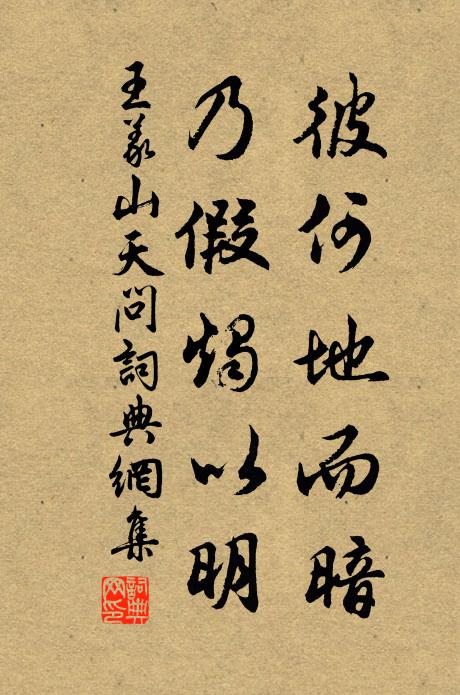 彼何地而暗
乃假燭以明
王義山天問詞典網集
詞典網印